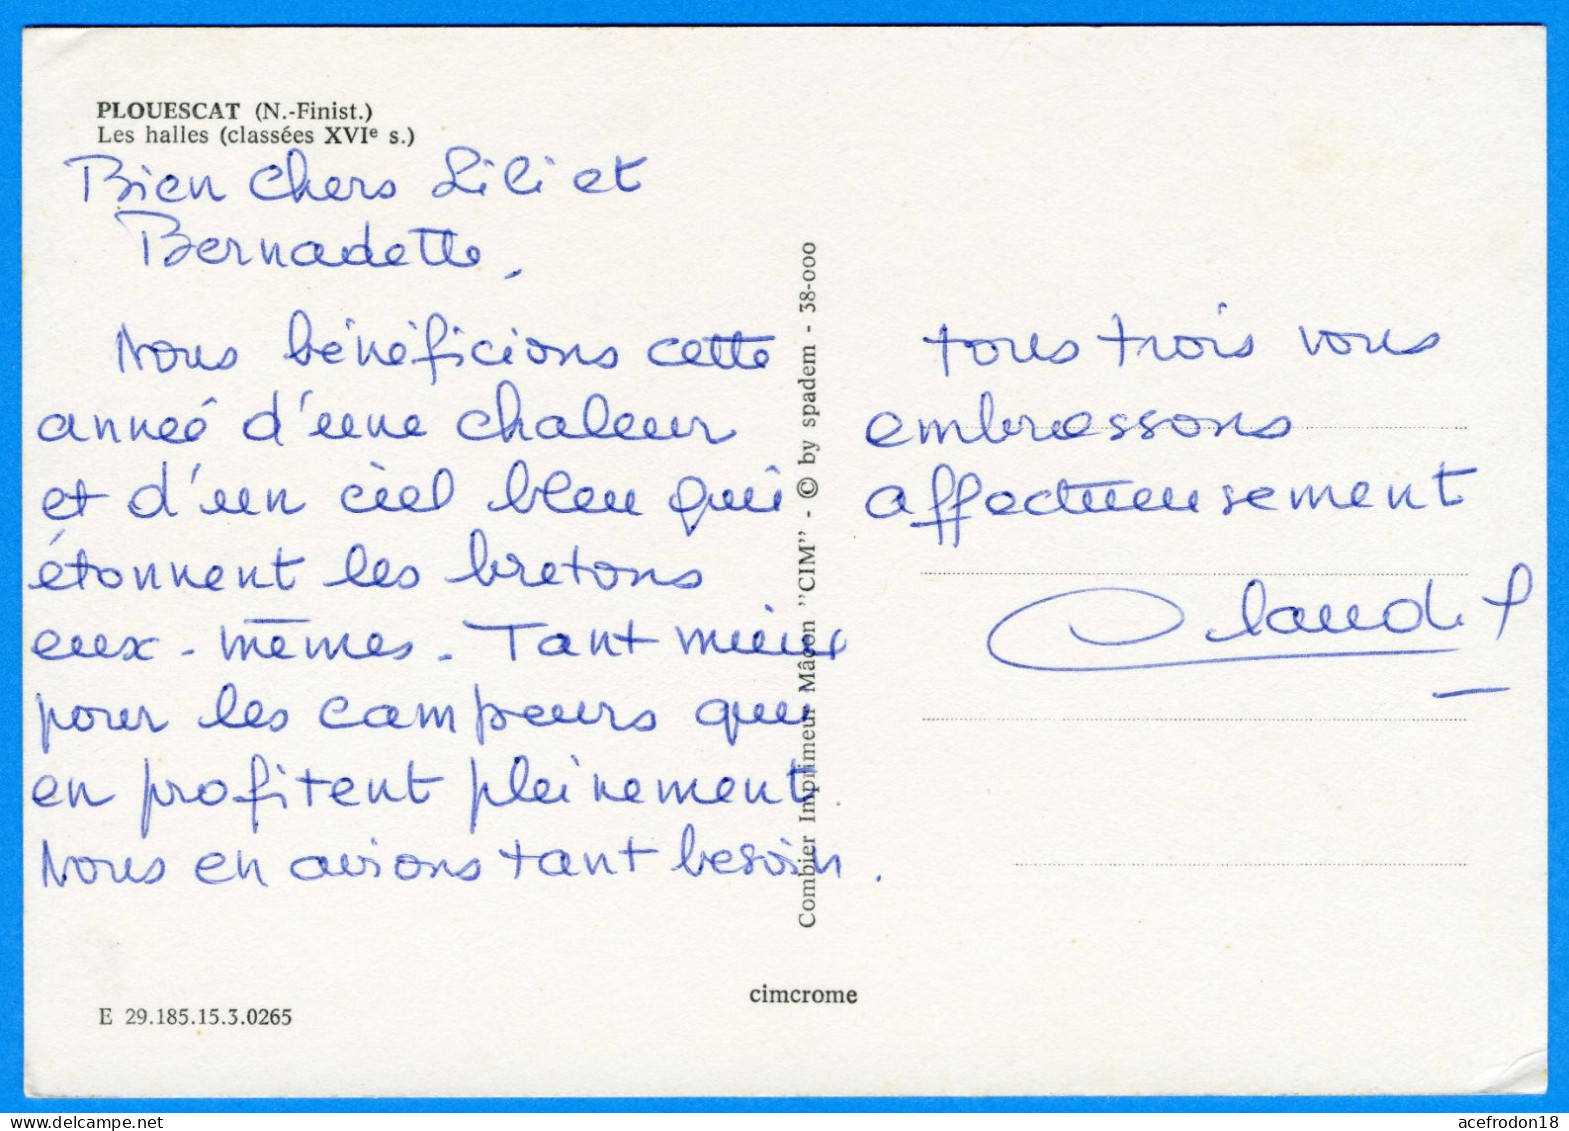 PLOUESCAT (N.-Finist.)
Les halles (classées XVIe s.)
Bien chers Lili et
Bernadette,
Nous bénéficions cette
année d'une chaleur
et d'un ciel bleu qui
étonnent les bretons
eux-mêmes. Tant mieux
pour les campeurs qui
en profitent pleinement.
Nous en avions tant besoin.
Combier Imprimeur Mâcon "CIM" - © by spadem - 38-000
tous trois vous
embrassons
affectueusement
Claud
cimcrome
E 29.185.15.3.0265
acefrodon18